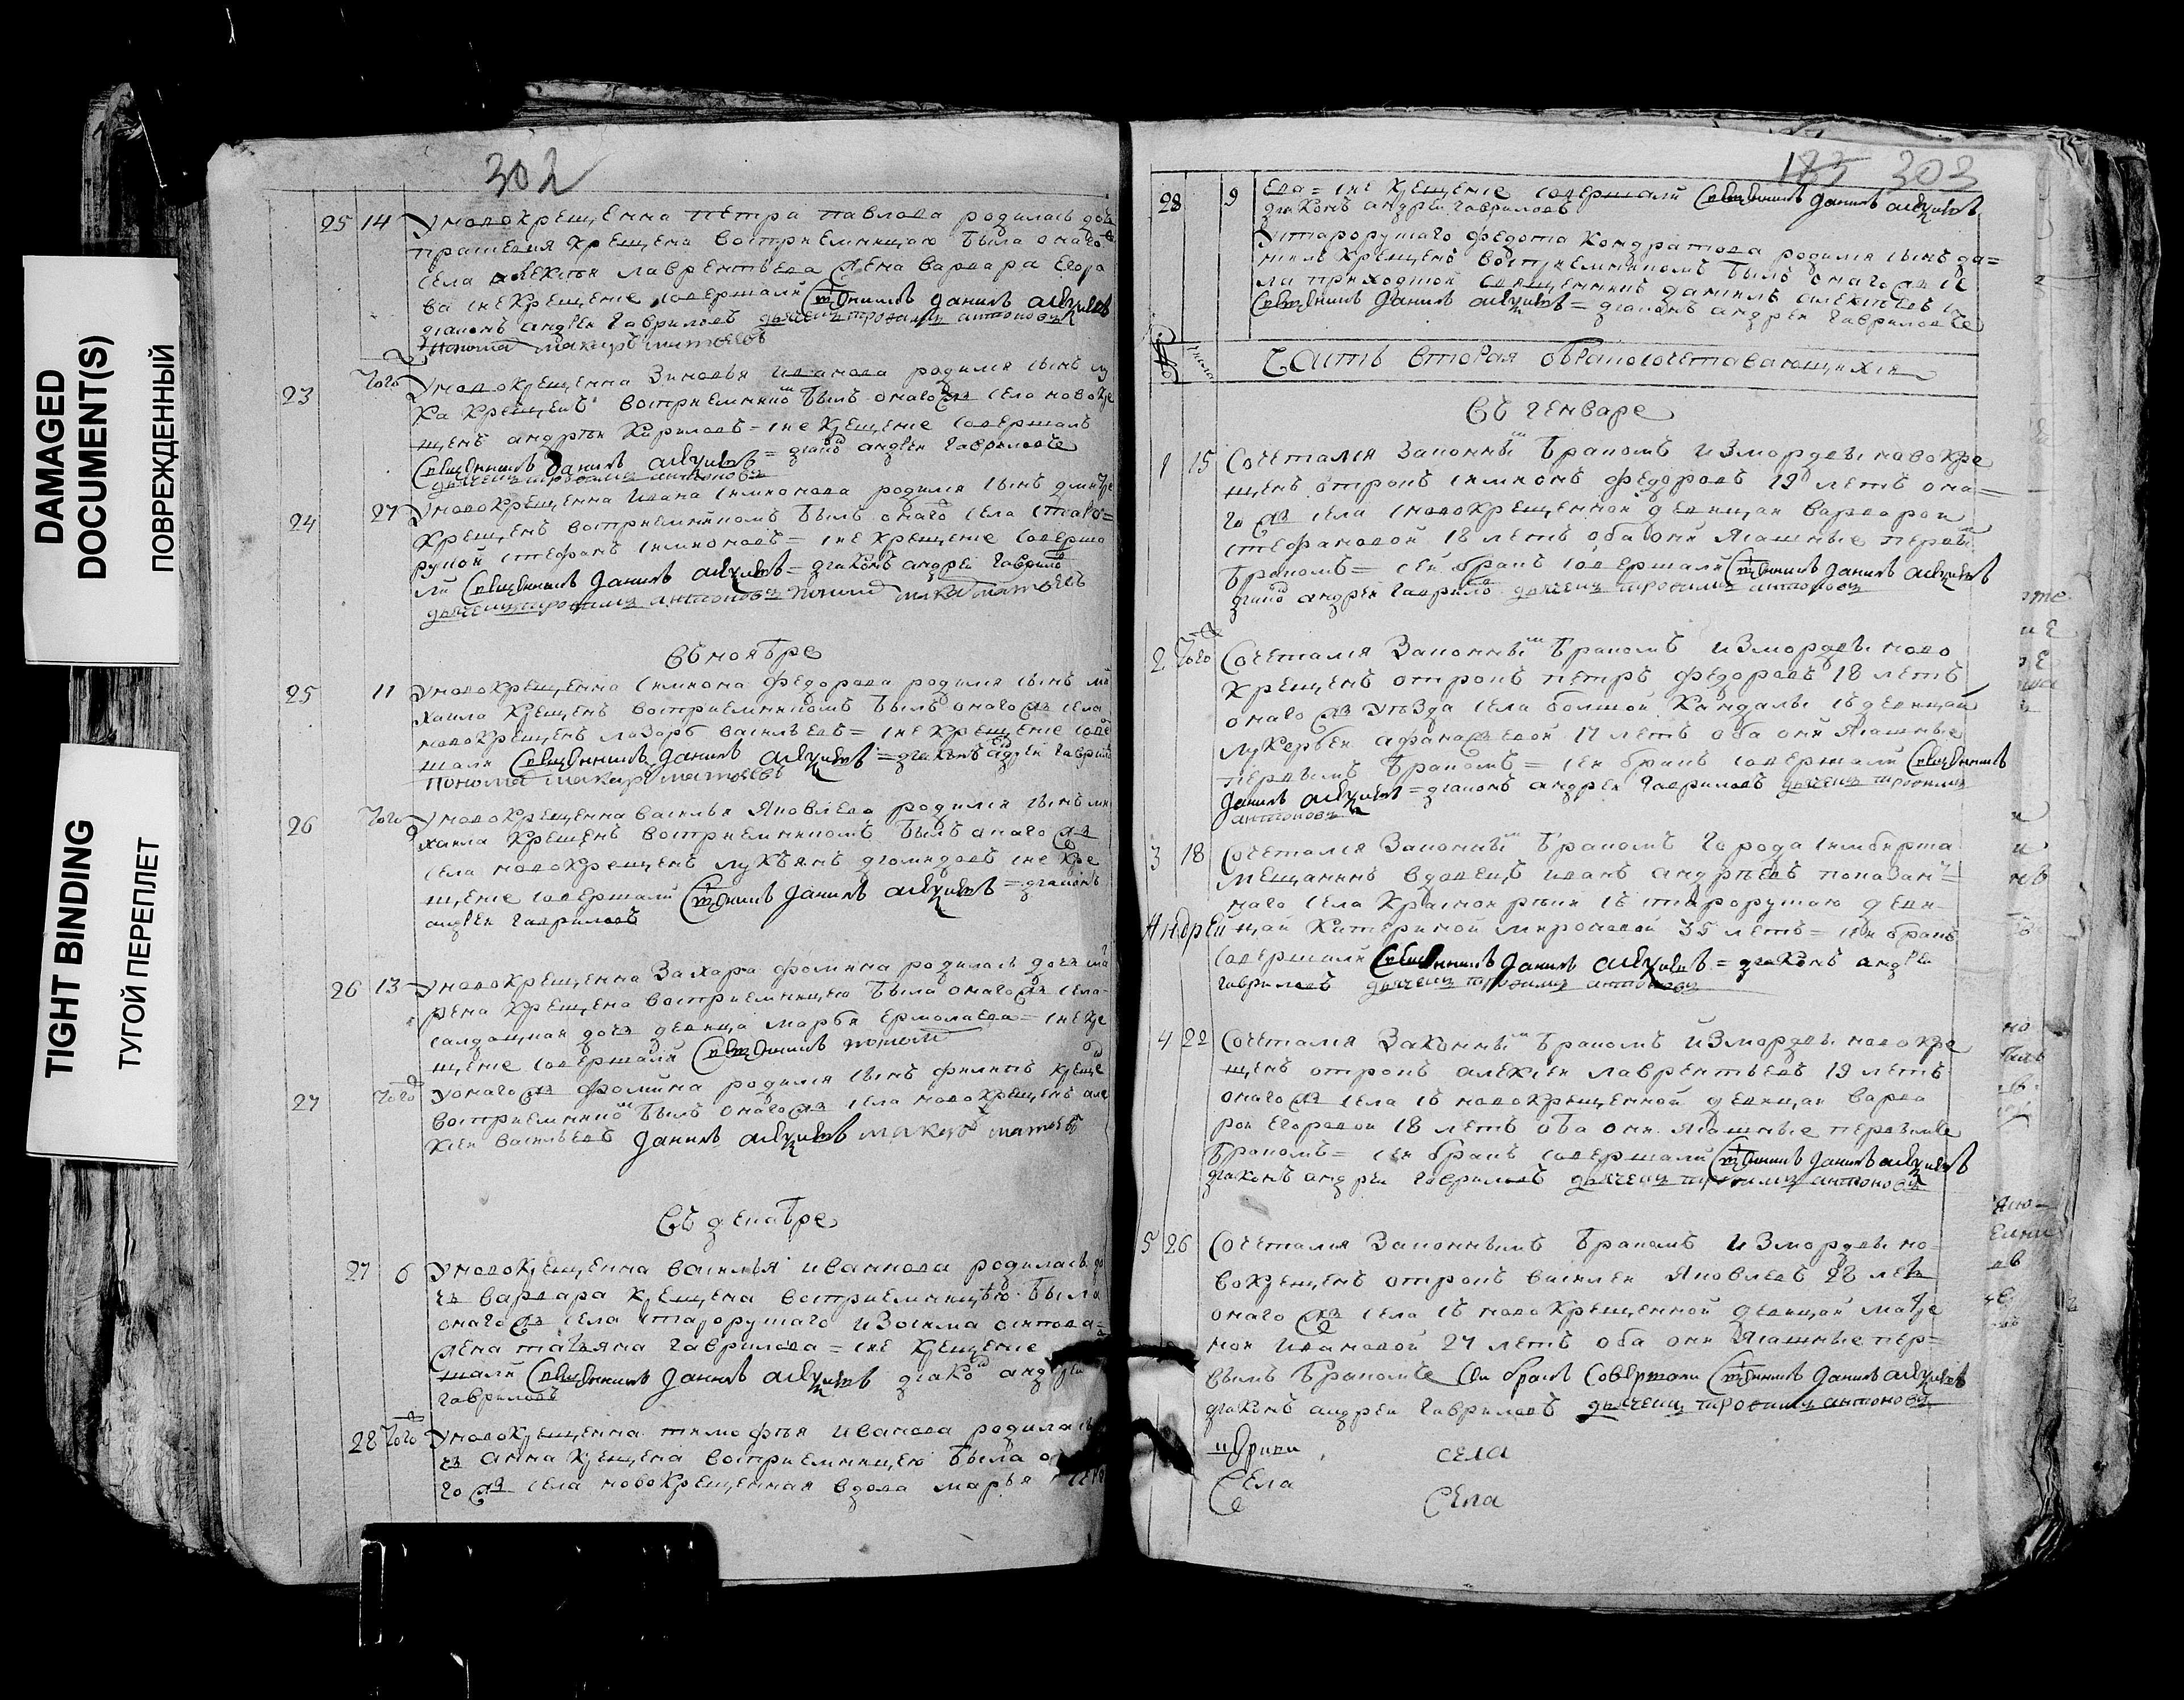 DAMAGED
DOCUMENT(S)
ПОВРЕЖДЕННЫЙ
TIGHT BINDING
ТУГОЙ ПЕРЕПЛЕТ
302
25 14 Уновокрещенна петра павлова родилась дочь
крещена восприемницою была онаго
села алексѣя лаврентьева жена варвара егоро
ва сие крещение совершали Священникъ Даниилъ алеѯиевъ
диаконъ андрей гавриловъ дьячекъ трофимъ антоновъ
пономарь макаръ матвеевъ
23 Того Уновокрещенна Зиновья иванова родился сынъ лу
ка крещенъ восприемникомъ былъ онаго же села новокре
щенъ андрѣй кириловъ = сие крещение совершалъ
Священникъ Даниилъ алеѯиевъ = диаконъ андрей гавриловъ
дьячекъ трофимъ антоновъ
24 27 Уновокрещенна ивана симионова родился сынъ дмитре
крещенъ восприемникомъ былъ онаго села старо=
рускои стефанъ симионовъ = сие крещение соверша
ли Священникъ Даниилъ алеѯиевъ = диаконъ андрей гаврилов
дьячекъ трофимъ антоновъ пономарь макаръ матвеевъ
Въ ноябре
25 11 Уновокрещенна симиона федорова родился сынъ ми
хаила крещенъ восприемникомъ былъ онаго же села
новокрещенъ лазорь васильевъ = сие крещение совер
шали Священникъ Даниилъ алеѯиевъ = диаконъ андрей гаврилов
пономарь макаръ матвеевъ
26 Того Уновокрещенна василья яковлева родился сынъ ми
хаила крещенъ восприемникомъ былъ онаго же
села новокрещенъ лукъянъ диомидовъ сие кре
щение совершали Священникъ Даниилъ алеѯиевъ = диаконъ
андрей гавриловъ
26 13 Уновокрещенна Захара фомина родилась дочь ма
рена крещена восприемницею была онаго же села
салдацкая дочь девица марья ермолаева = сие кре
щение совершали Священникъ пономарь
27 Того Уонаго же фомина родился сынъ филипъ креще
восприемникомъ былъ онаго же села новокрещенъ але
ксѣи васильевъ Даниилъ алеѯиевъ макаръ матвеевъ
Въ декабре
27 6 Уновокрещенна василья иванова родилась до
чь варвара крещена восприемницею была
онаго же села старорускаго Изосима осипова
жена татьяна гаврилова = сие крещение
шали Священникъ Даниилъ алеѯиевъ диаконъ андрей
гавриловъ
28 Того Уновокрещенна тимофѣя иванова родилась
чь анна крещена восприемницею была
го же села новокрещенная вдова марья
183 303
28 9 ева = сие крещение совершали Священникъ Даниилъ алеѯиевъ
диаконъ андрей гавриловъ
Устарорускаго федота кондратова родился сынъ да=
ниилъ крещенъ восприемникомъ былъ онаго же се
ла приходской священникъ даниилъ алексѣевъ
Священникъ Даниилъ алеѯиевъ = диаконъ андрей гавриловъ
числа Часть вторая о бракосочетавающихся
Въ генваре
1 15 Сочетался Законнымъ бракомъ из мордвы новокре
щенъ отрокъ симионъ федоровъ 19 летъ она=
го же села с новокрещенной девицаи варварои
стефановой 18 летъ оба они ясашные первымъ
бракомъ = сей бракъ совершали Священникъ Даниилъ алеѯиевъ
диаконъ андрей гаврилов дьячекъ трофимъ антоновъ
2 Того Сочетался Законнымъ бракомъ из мордвы ново
крещенъ отрокъ петръ федоровъ 18 летъ
онаго же уѣзда села болшой кандалы съ девицаи
лукерьеи афанасьевой 17 летъ оба они ясашные
первымъ бракомъ = сей бракъ совершали Священникъ
Даниилъ алеѯиевъ = диаконъ андрей гавриловъ дьячекъ трофимъ
антоновъ
3 18 Сочетался Законнымъ бракомъ города симбирска
мещанинъ вдовецъ иванъ андрѣевъ показан=
наго села съ старорускою деви
Андрей цаи катериной мироновой 35 летъ = сей бракъ
совершали Священникъ Даниилъ алеѯиевъ = диаконъ андрей
гавриловъ дьячекъ трофимъ антоновъ
4 22 Сочетался Законнымъ бракомъ из мордвы новокре
щенъ отрокъ алексѣи лаврентьевъ 19 летъ
онаго же села съ новокрещенной девицаи варва
рои егоровой 18 летъ оба они ясашные первымъ
бракомъ = сей бракъ совершали Священникъ Даниилъ алеѯиевъ
диаконъ андрей гавриловъ дьячекъ трофимъ антоновъ
5 26 Сочетался Законнымъ бракомъ из мордвы но=
вокрещенъ отрокъ василеи яковлевъ 28 летъ
онаго же села съ новокрещенной девицаи матре
ной ивановой 27 летъ оба они ясашные пер=
вымъ бракомъ Сей бракъ Совершали Священникъ Даниилъ алеѯиевъ
диаконъ андрей гавриловъ дьячекъ трофимъ антоновъ
села
Села Села